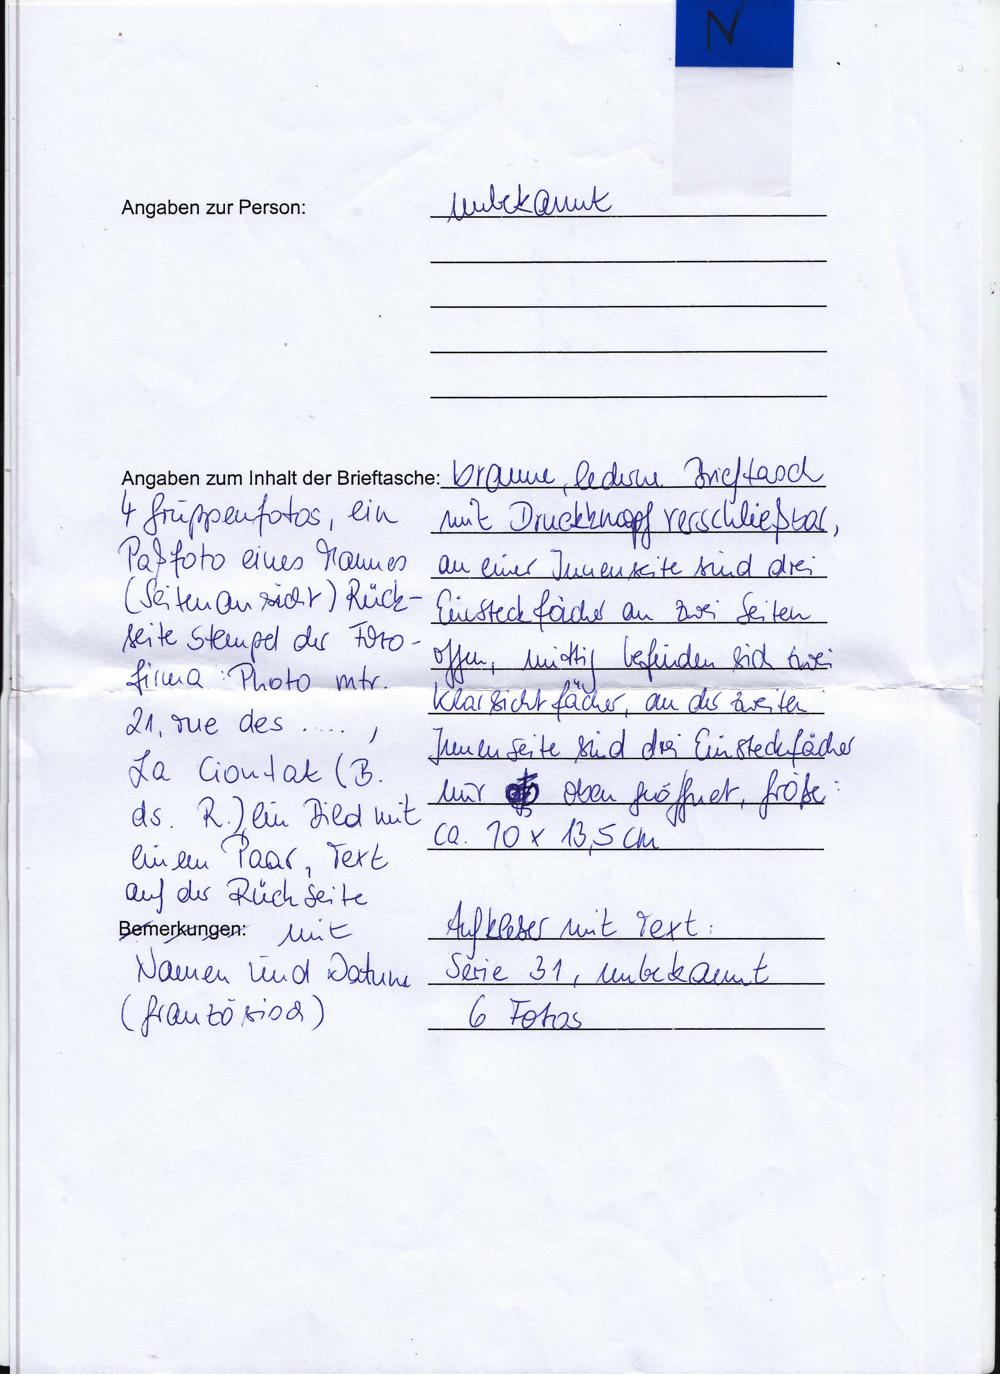 N
Angaben zur Person: unbekannt
Angaben zum Inhalt der Brieftasche: braune, lederne Brieftasch
mit Druckknopf verschließbar,
an einer Innenseite sind drei
Einsteckfächer an zwei Seiten
offen, mittig befinden sich zwei
Klarsichtfächer, an der zweiten
Innenseite sind drei Einsteckfächer
nur oben geöffnet, Größe:
ca. 10 x 13,5 cm
4 Gruppenfotos, ein
Paßfoto eines Mannes
(Seitenansicht) Rück-
seite Stempel der Foto-
firma: Photo mtr.
21, rue des ....,
La Ciontat (B.
ds. R.), ein Bild mit
einem Paar, Text
auf der Rückseite
Bemerkungen: mit
Namen und Datum
(französisch)
Aufkleber mit Text:
Serie 31, unbekannt
6 Fotos